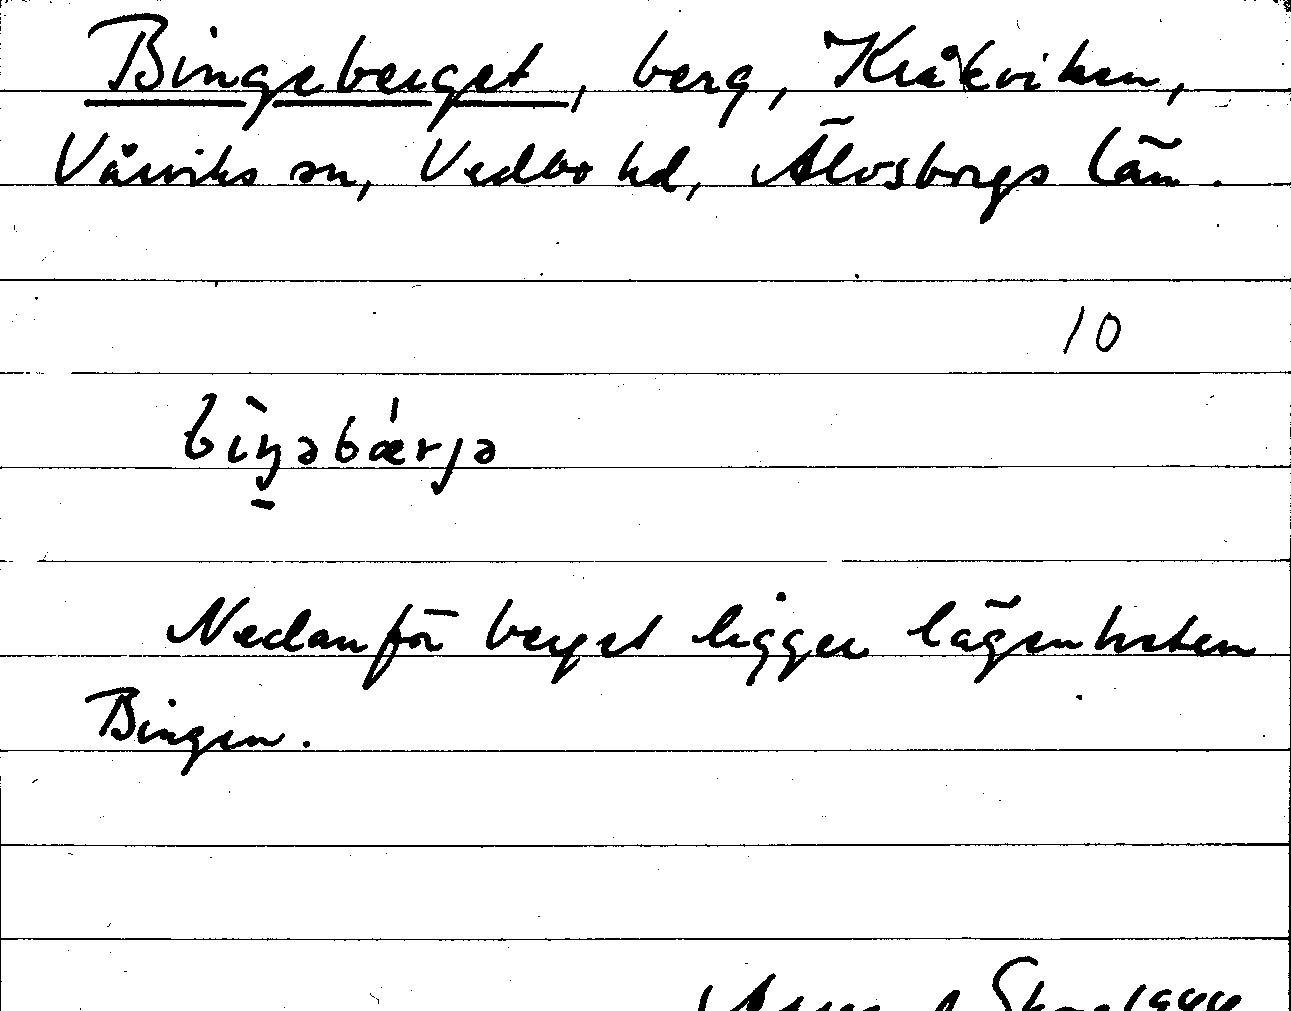 Bingeberget, berg, Kråkviken,
Vårviks sn, Vedbo hd, Älvsborgs län.
10
bìŋəbǽrjə
Nedanför berget ligger lägenheten
Bingen.